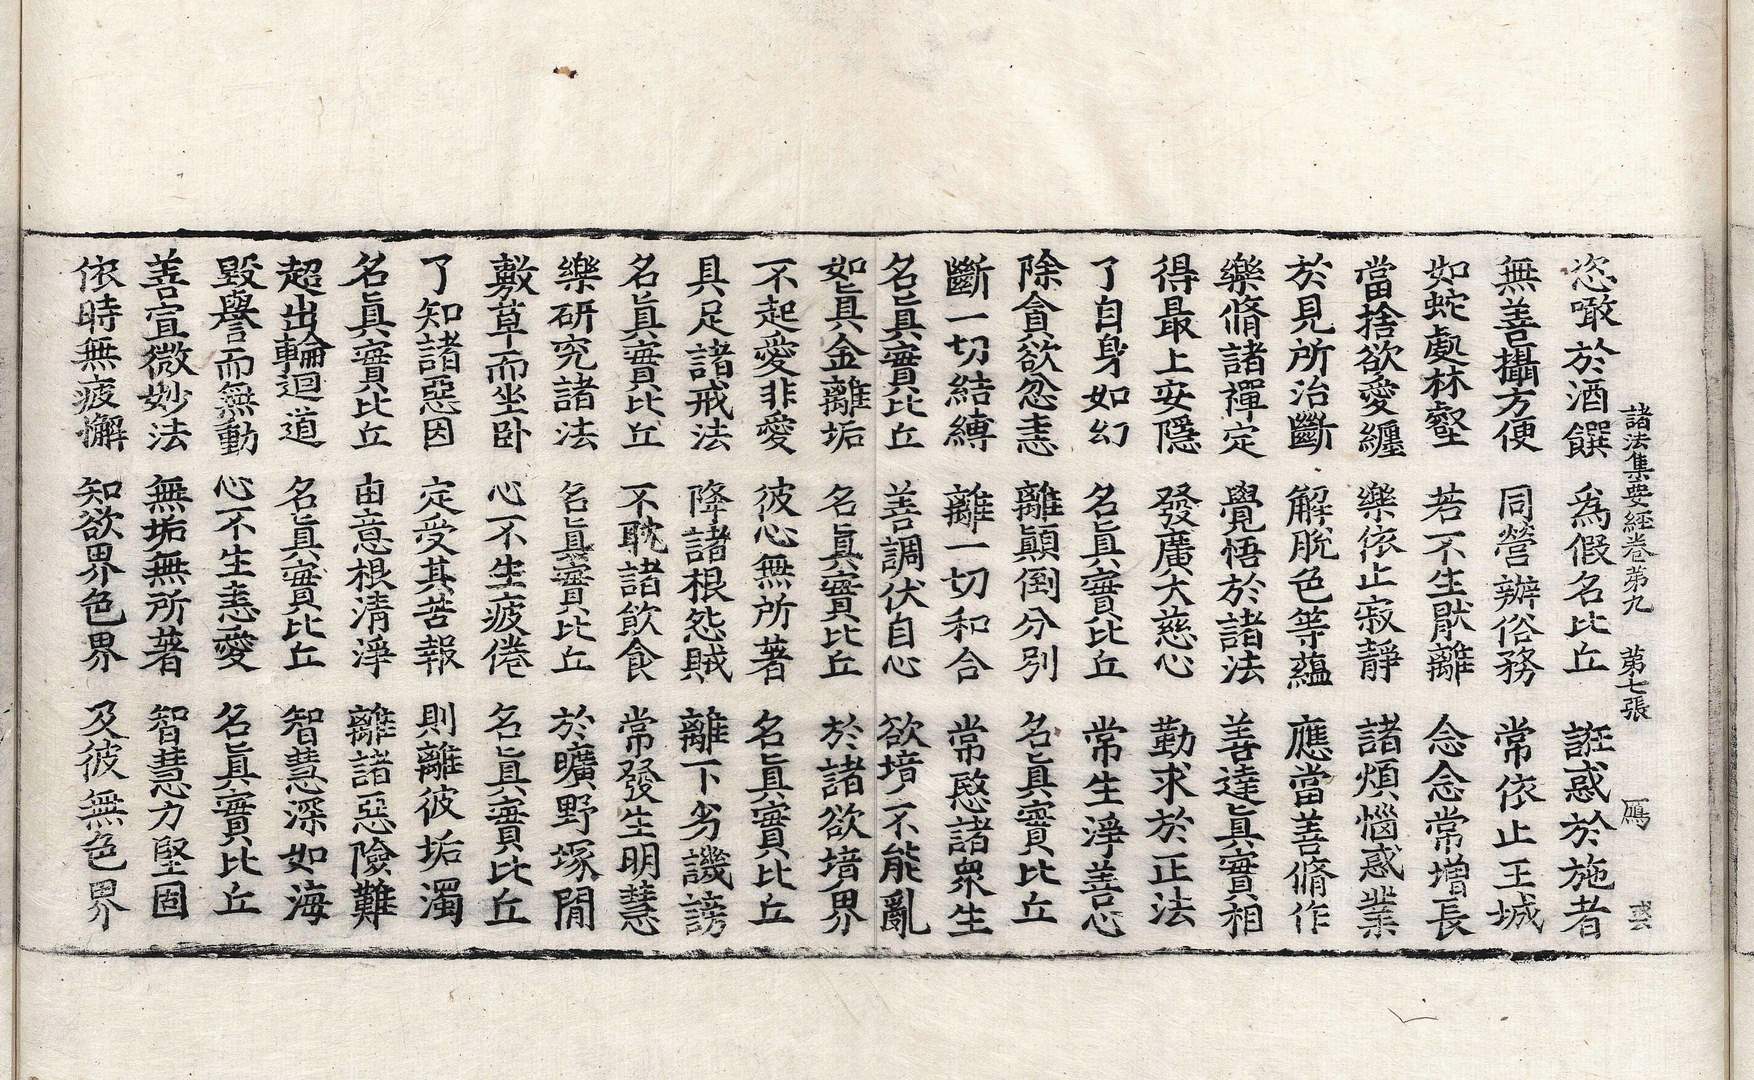 諸法集要經卷第九　第七張　鴈
恣噉於酒饌　為假名比丘　誑惑於施者
無善攝方便　同營辦俗務　常依止王城
如蛇處林壑　若不生猒離　念念常增長
當捨欲愛纏　樂依止寂靜　諸煩惱惑業
於見所治斷　解脫色等蘊　應當善脩作
樂脩諸禪定　覺悟於諸法　善達真實相
得最上安隱　發廣大慈心　勤求於正法
了自身如幻　名真實比丘　常生淨善心
除貪欲忿恚　離顛倒分別　名真實比丘
斷一切結縛　離一切和合　常愍諸眾生
名真實比丘　善調伏自心　欲境不能亂
如真金離垢　名真實比丘　於諸欲境界
不起愛非愛　彼心無所著　名真實比丘
具足諸戒法　降諸根怨賊　離下劣譏謗
名真實比丘　不耽諸飲食　常發生明慧
樂研究諸法　名真實比丘　於曠野塚間
敷草而坐臥　心不生疲倦　名真實比丘
了知諸惡因　定受其苦報　則離彼垢濁
名真實比丘　由意根清淨　離諸惡險難
超出輪迴道　名真實比丘　智慧深如海
毀譽而無動　心不生恚愛　名真實比丘
善宣微妙法　無垢無所著　智慧力堅固
依時無疲懈　知欲界色界　及彼無色界